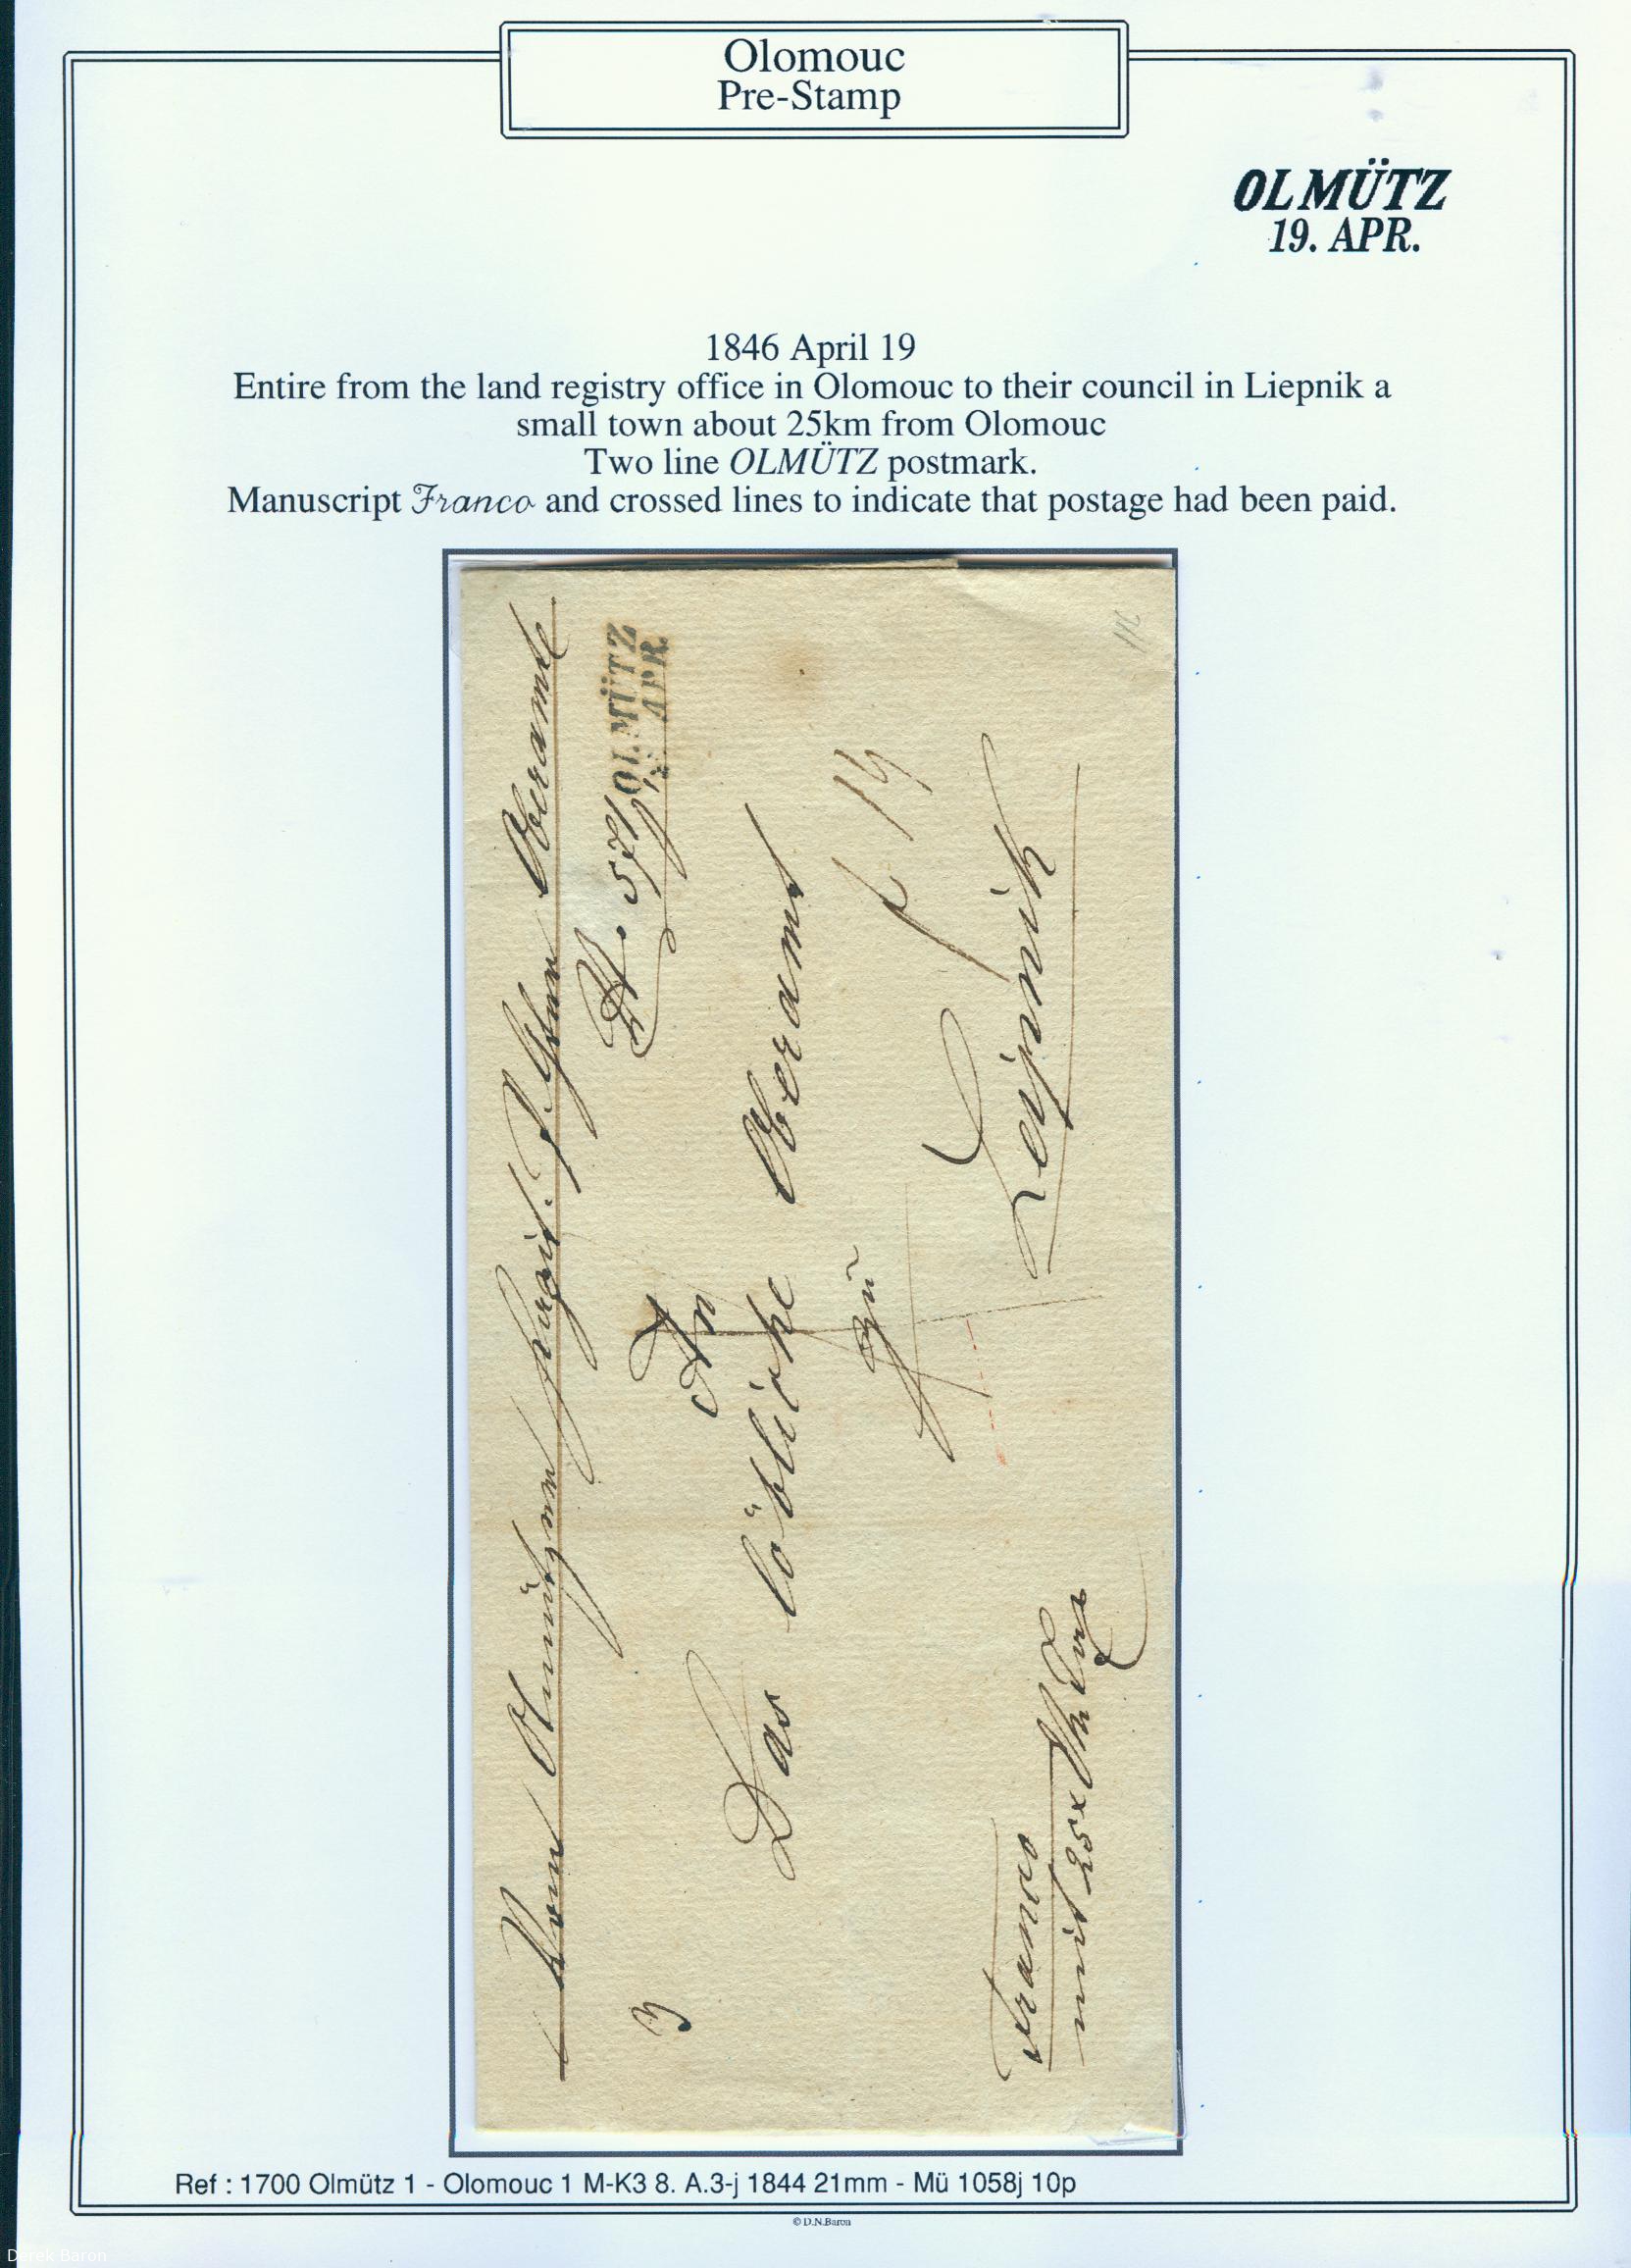 Olomouc
Pre-Stamp
OLMÜTZ
19. APR.
1846 April 19
Entire from the land registry office in Olomouc to their council in Liepnik a
small town about 25km from Olomouc
Two line OLMÜTZ postmark.
Manuscript Franco and crossed lines to indicate that postage had been paid.
Vom Olmützer Oberamte
571
OLMÜTZ
APR.
An
Das löbliche Oberamt
zu
Leipnik
Franco
mit
Ref : 1700 Olmütz 1 - Olomouc 1 M-K3 8. A.3-j 1844 21mm - Mü 1058j 10p
© D.N.Baron
Derek Baron